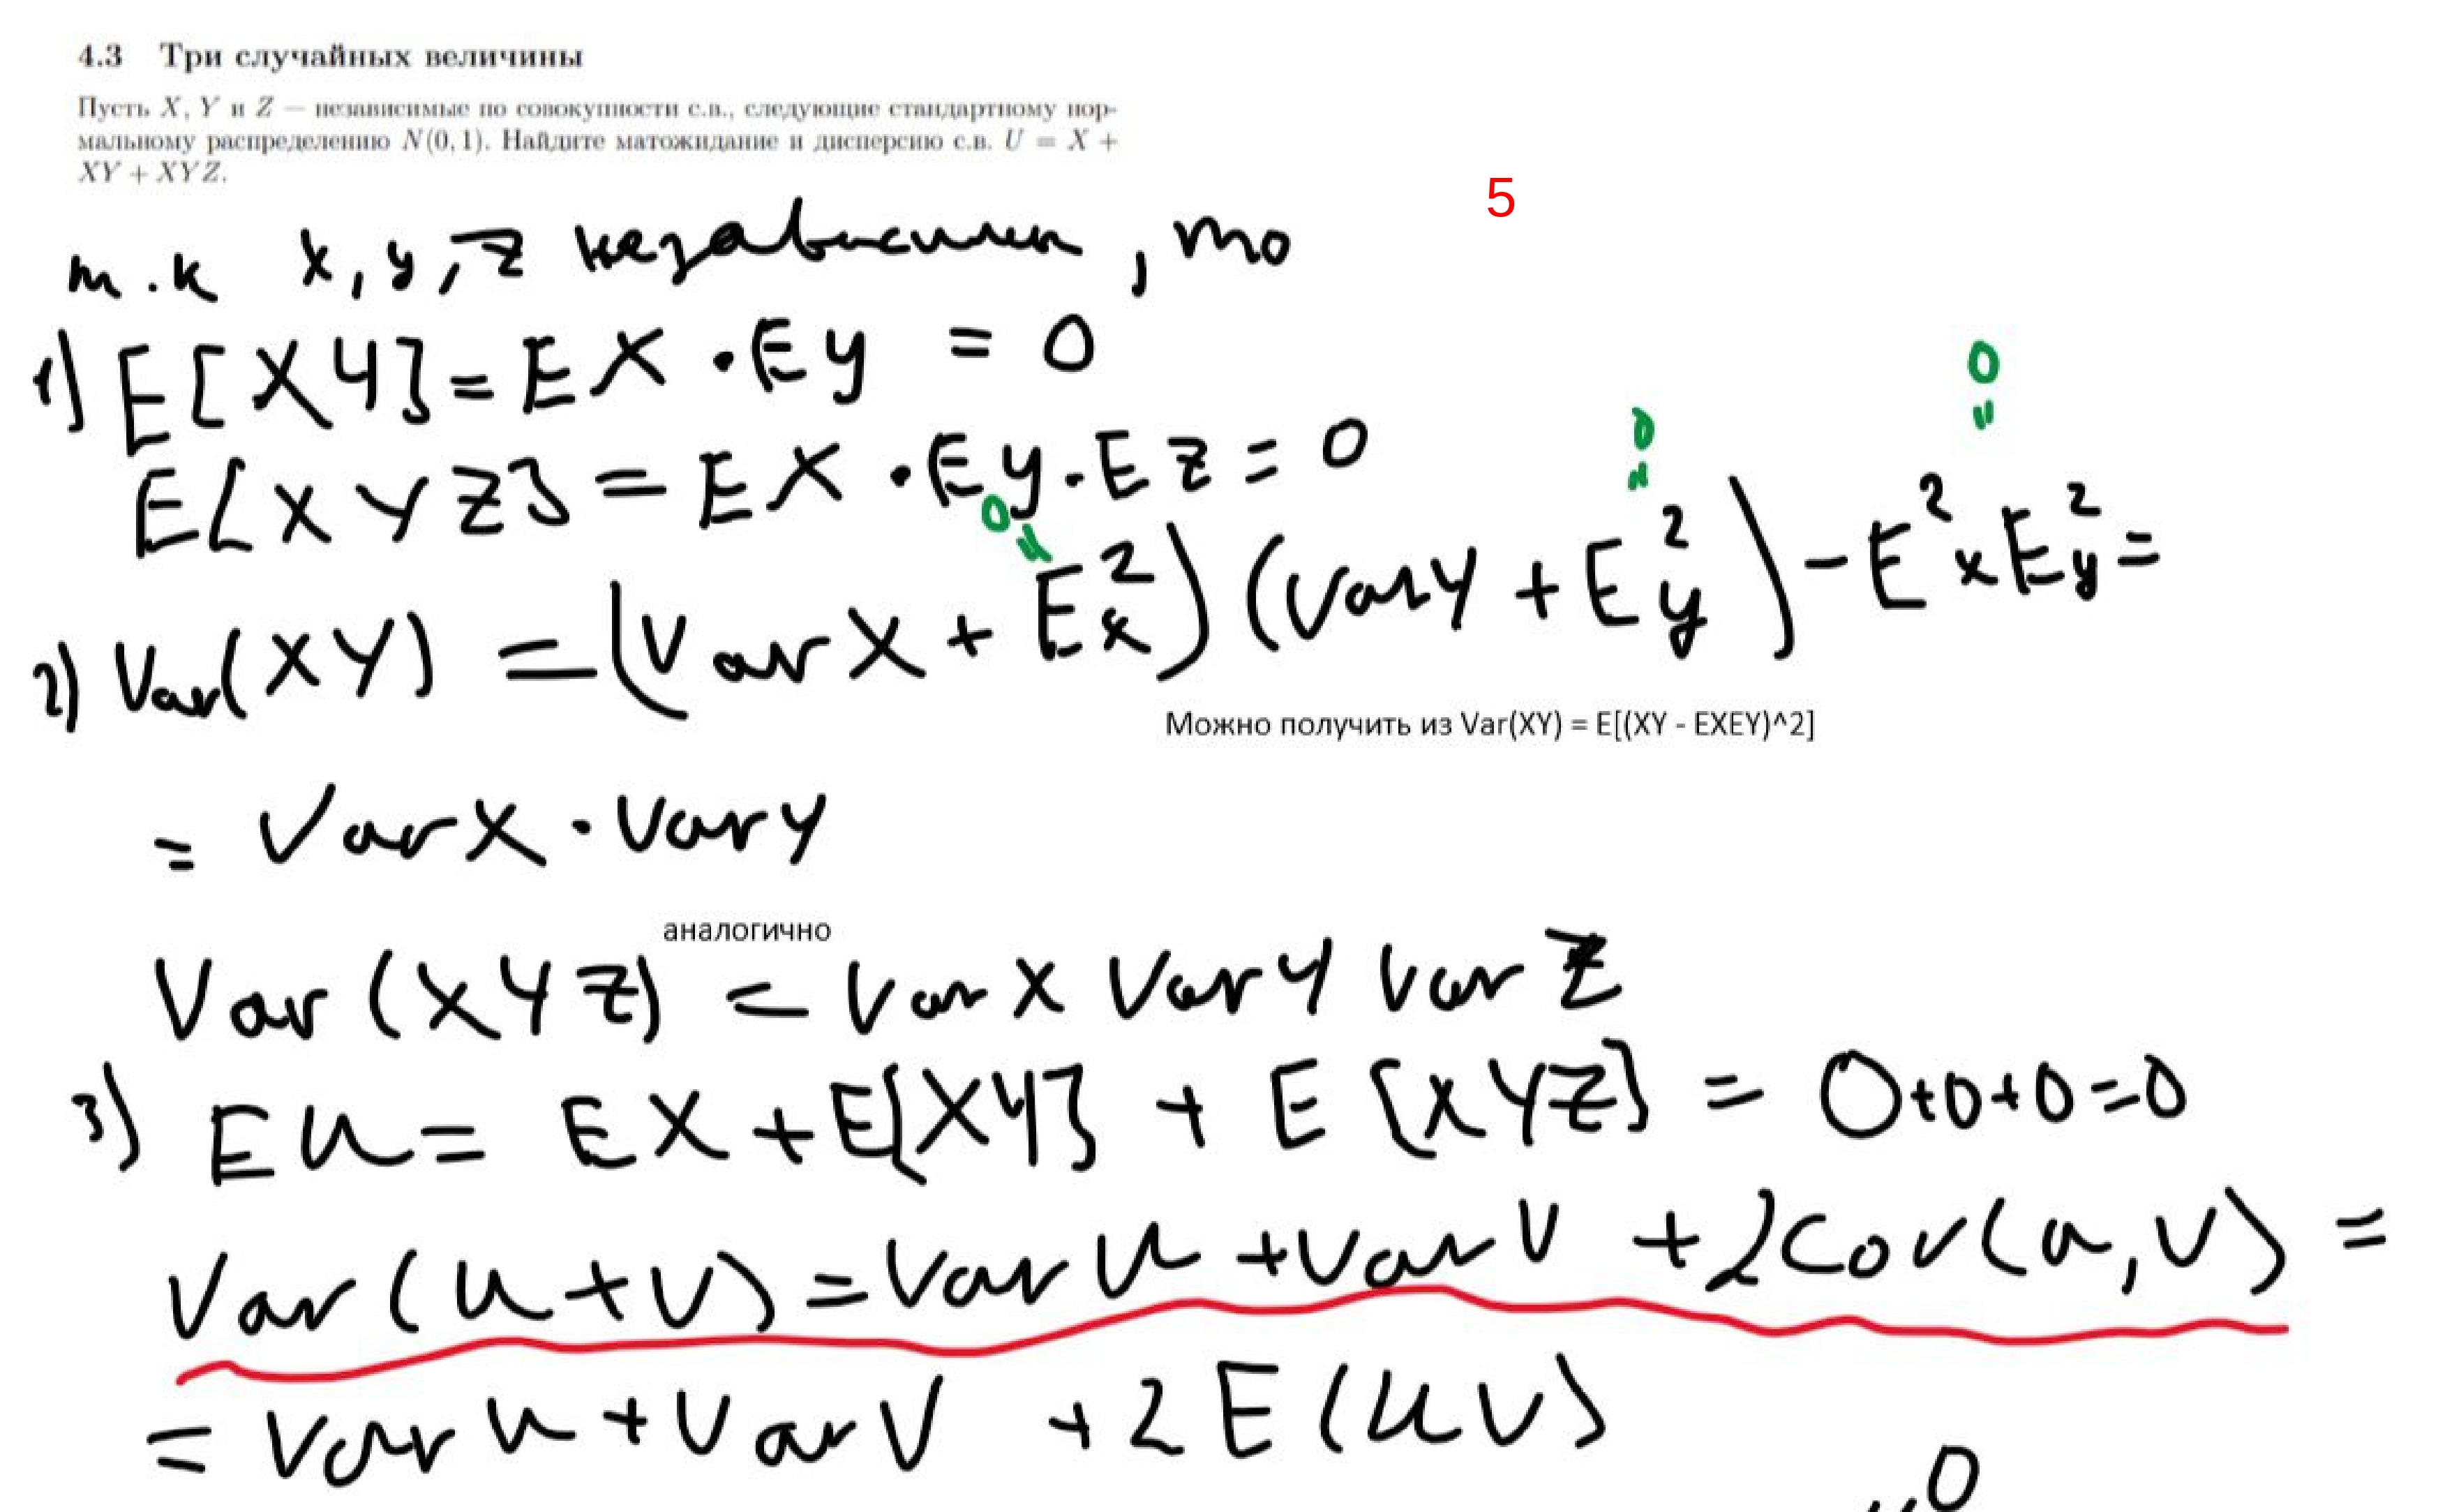 4.3 Три случайных величины
Пусть X, Y и Z — независимые по совокупности с.в., следующие стандартному нор-
мальному распределению N(0, 1). Найдите матожидание и дисперсию с.в. U = X +
XY + XYZ.
5
т.к x, y, z независимы, то
1) E[XY] = EX · EY = 0
E[XYZ] = EX · EY · EZ = 0
0 = 0 = 0 =
2) Var(XY) = (VarX + E²x)(VarY + E²y) - E²xE²y =
Можно получить из Var(XY) = E[(XY - EXEY)^2]
= VarX · VarY
аналогично
Var(XYZ) = VarX VarY VarZ
3) EU = EX + E[XY] + E[XYZ] = 0+0+0=0
Var(U+V) = VarU + VarV + 2Cov(U,V) =
= VarU + VarV + 2E(UV)
0